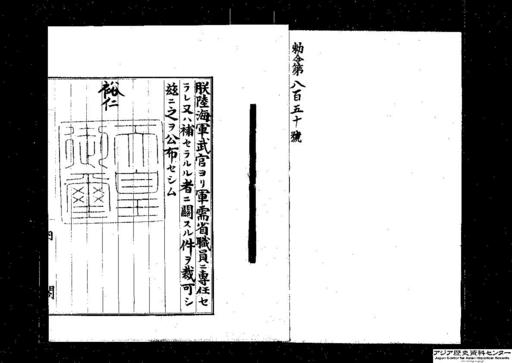 勅令第八百五十號
朕陸海軍武官ヨリ軍需省職員ニ専任セ
ラレ又ハ補セラルル者ニ關スル件ヲ裁可シ
玆ニ之ヲ公布セシム
裕仁
天皇御璽
内閣
アジア歴史資料センター
Japan Center for Asian Historical Records